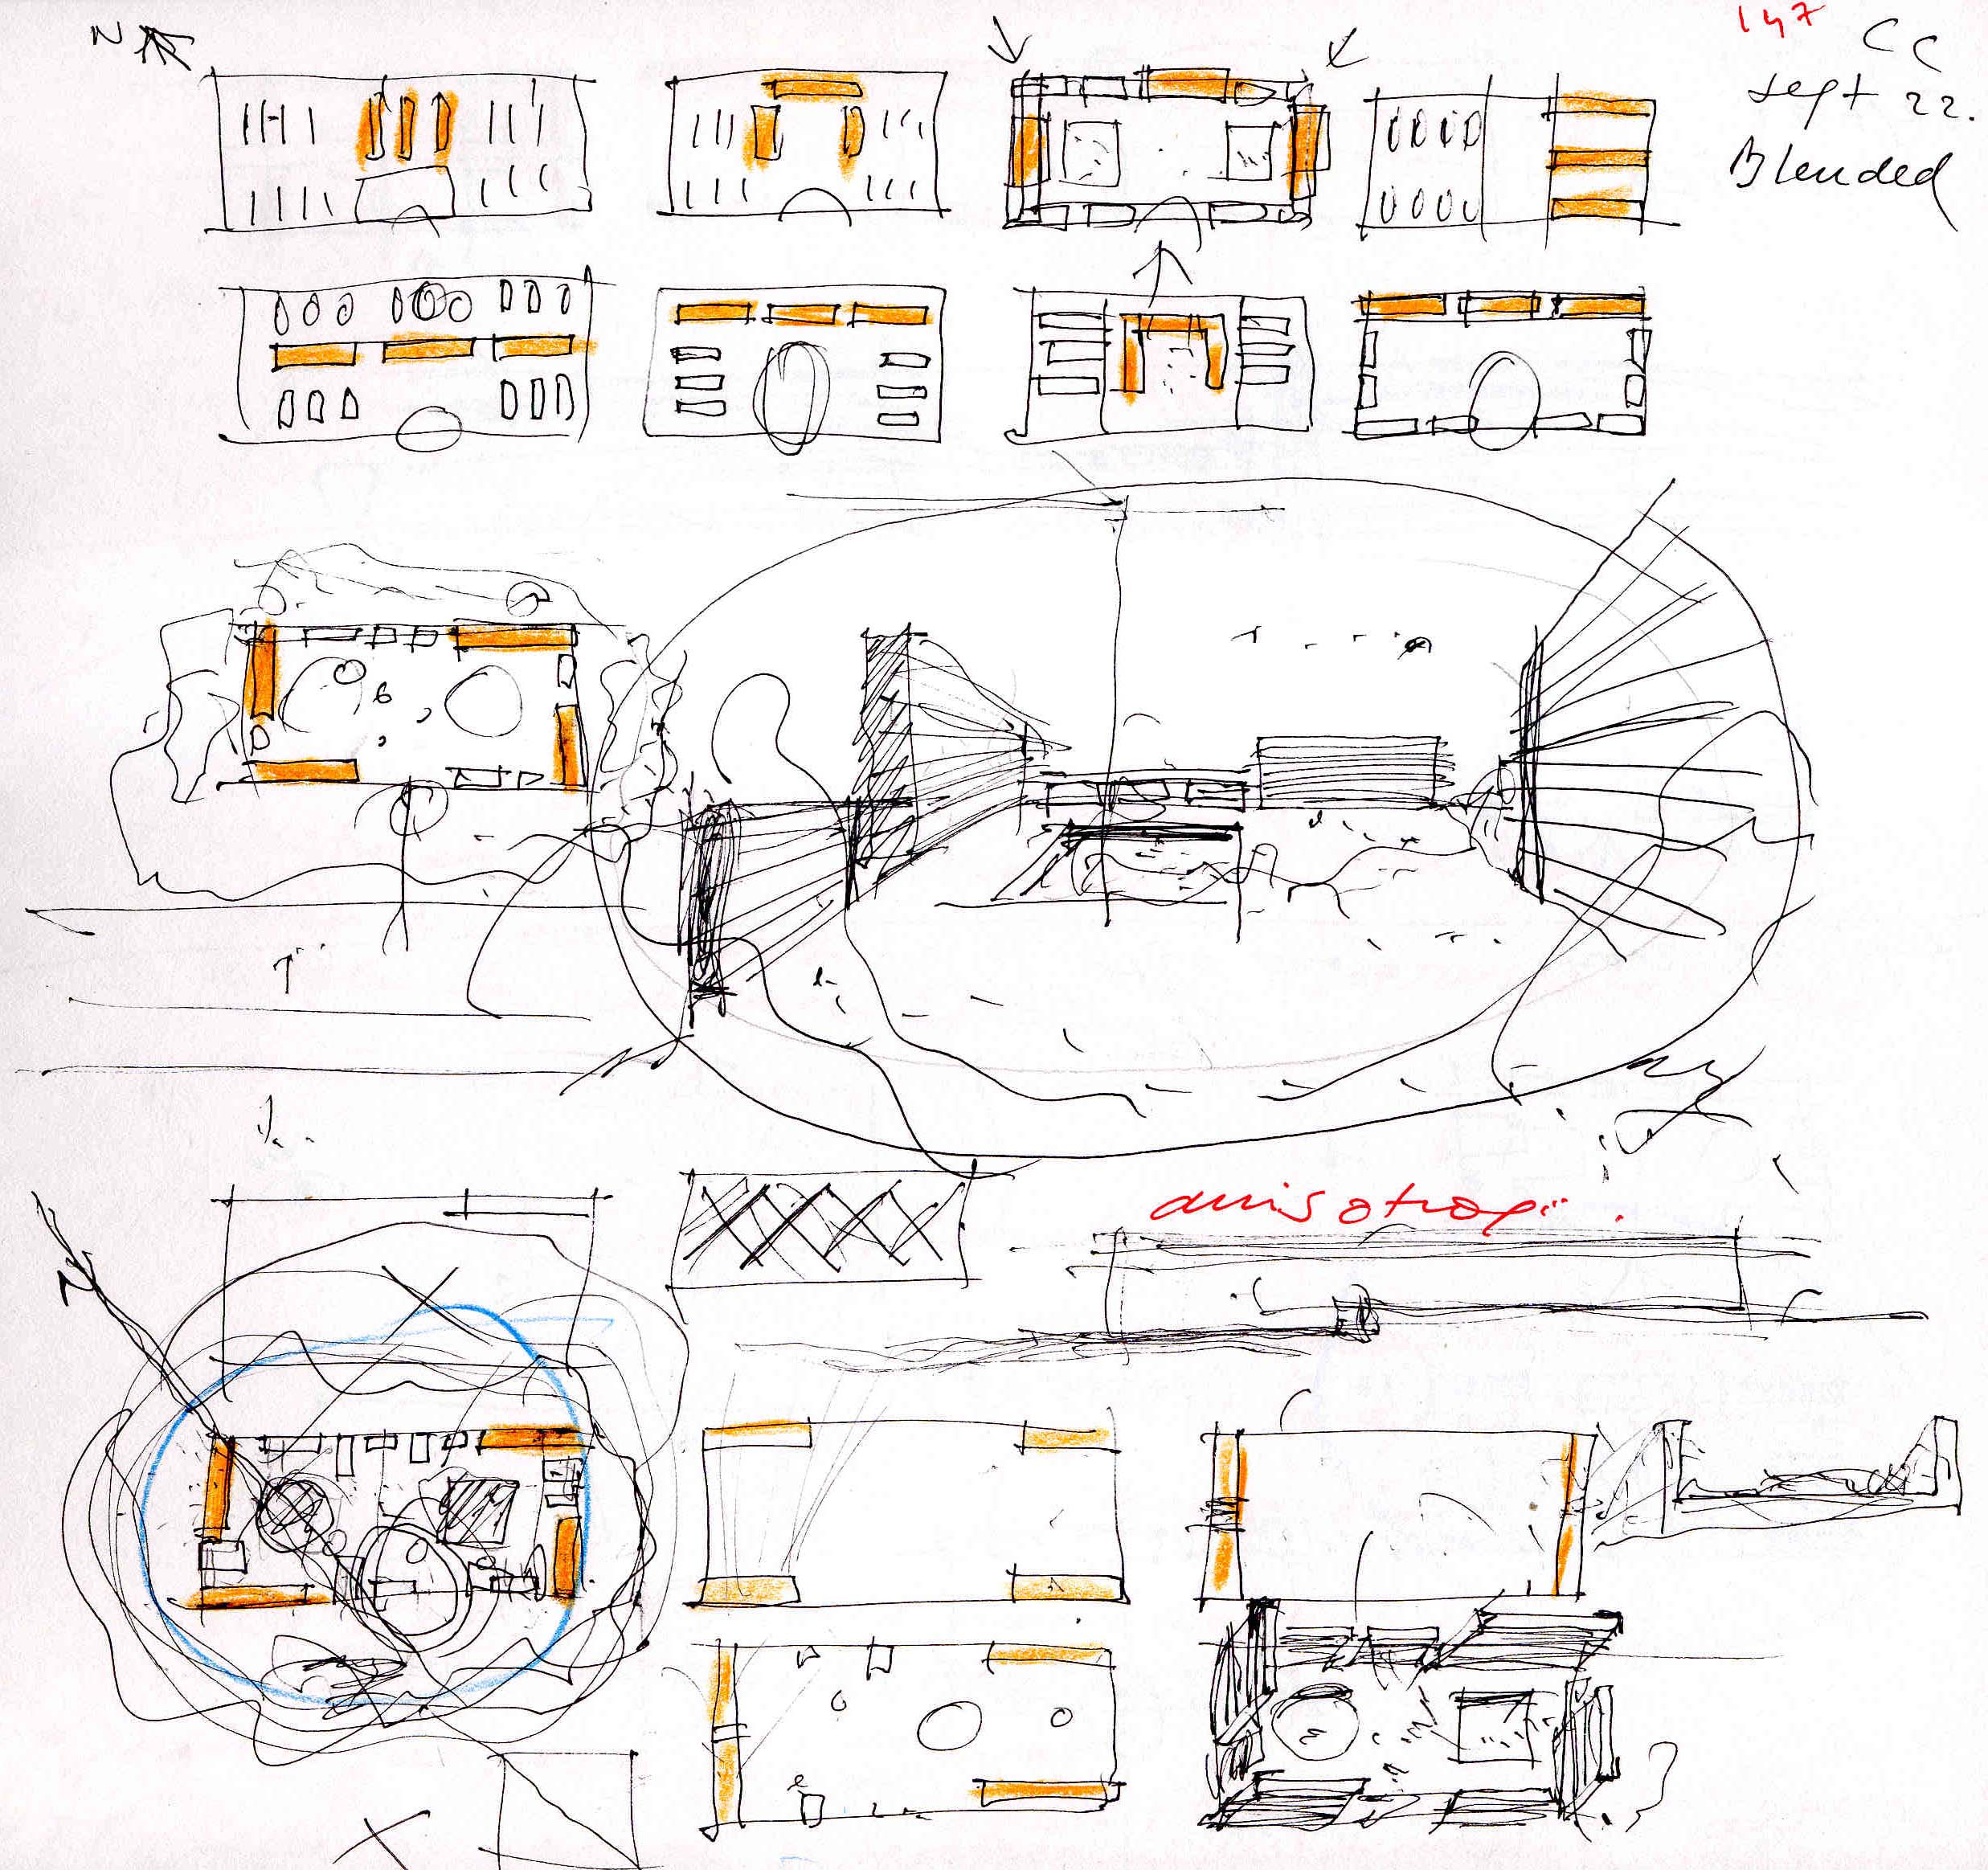 N
147
CC
sept 22.
Blended
anisotropi
N